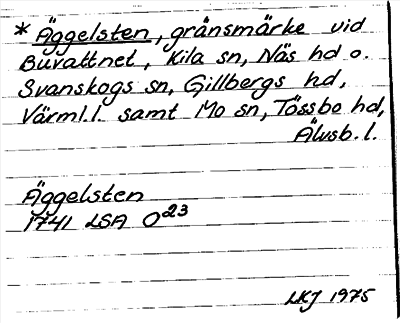 * Äggelsten, gränsmärke vid
Buvattnet, Kila sn, Näs hd o.
Svanskogs sn, Gillbergs hd,
Värml.l. samt Mo sn, Tössbo hd,
Älvsb. l.
Äggelsten
1741 LSA O23
LKJ 1975